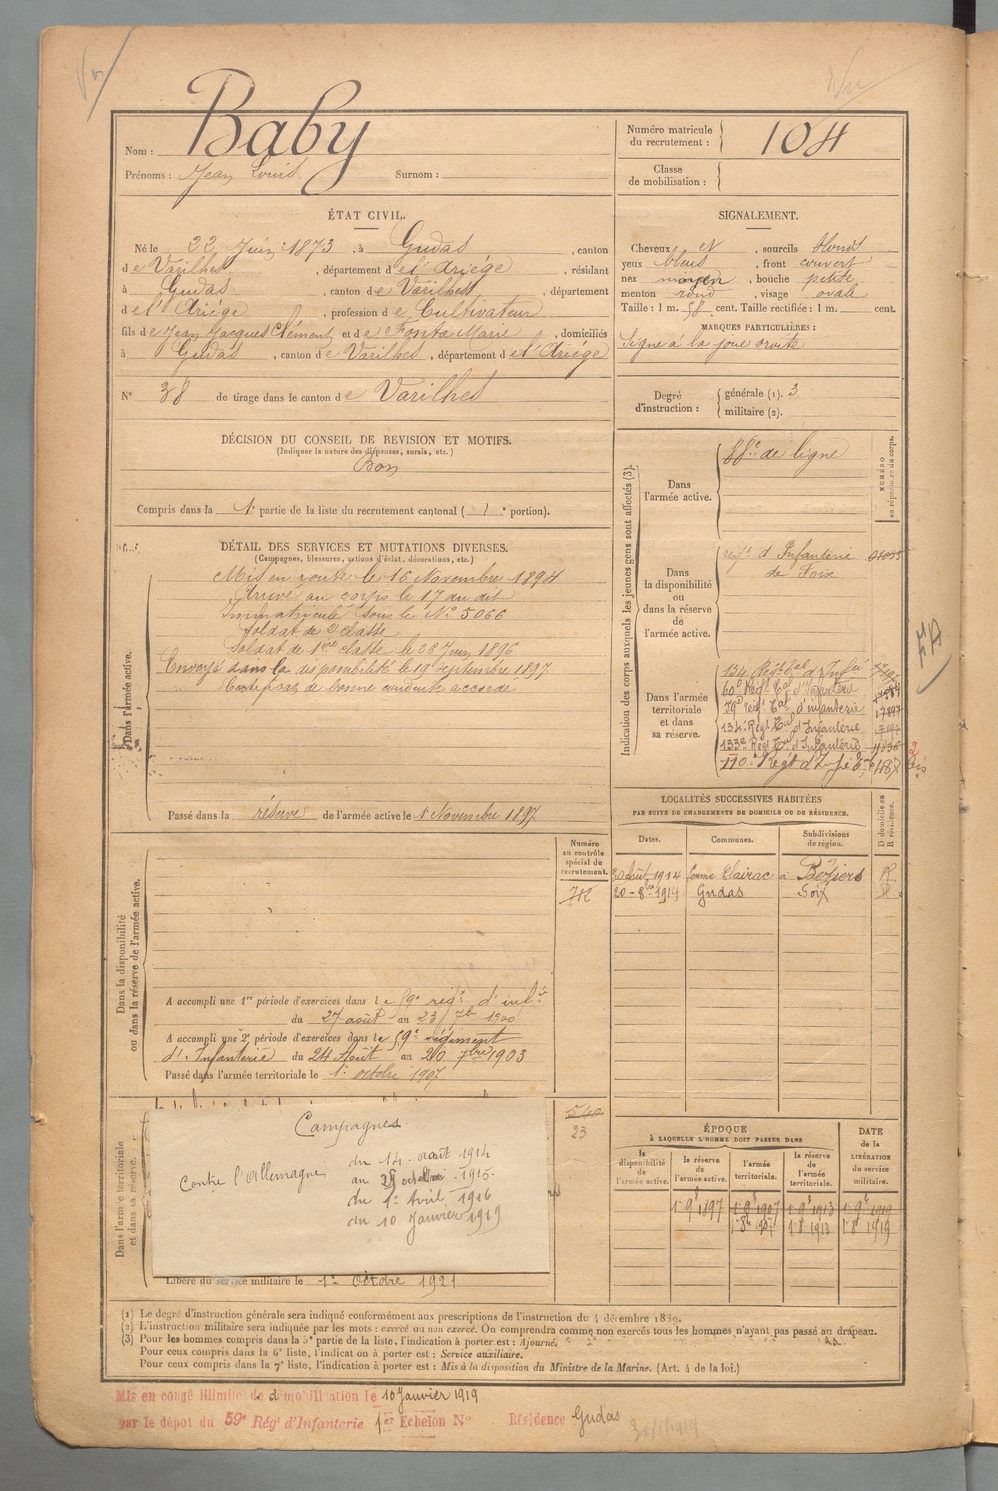 Nom : Baby
Prénoms : Jean Louis Surnom :
Numéro matricule du recrutement : 104
Classe de mobilisation :
ÉTAT CIVIL.
Né le 22 Juin 1873, à Gudas, canton
de Varilhes, département de l'Ariège, résidant
à Gudas, canton de Varilhes, département
de l'Ariège, profession de Cultivateur
fils de Jean Jacques Clément et de Fonta Marie, domiciliés
à Gudas, canton de Varilhes, département de l'Ariège
N° 38 de tirage dans le canton de Varilhes
SIGNALEMENT.
Cheveux et, sourcils blond
yeux bleus, front couvert
nez moyen, bouche petite
menton rond, visage ovale
Taille : 1 m. 58 cent. Taille rectifiée : 1 m. cent.
MARQUES PARTICULIÈRES :
Signe à la joue droite
Degré d'instruction : générale (1). 3
militaire (2).
DÉCISION DU CONSEIL DE REVISION ET MOTIFS.
(Indiquer la nature des dispenses, sursis, etc.)
Bon
Compris dans la 1e partie de la liste du recrutement cantonal ( 1e portion).
DÉTAIL DES SERVICES ET MUTATIONS DIVERSES.
(Campagnes, blessures, actions d'éclat, décorations, etc.)
Dans l'armée active.
Mis en route le 16 Novembre 1894
Arrivé au corps le 17 au dit
Immatriculé sous le N° 5066
Soldat de 2e classe
Soldat de 1ère classe le 28 Juin 1896
Envoyé dans la disponibilité le 19 Septembre 1897
Certificat de bonne conduite accordé
Passé dans la réserve de l'armée active le 1 Novembre 1897
Indication des corps auxquels les jeunes gens sont affectés (3).
NUMÉRO au répertoire du corps.
Dans l'armée active.
88e de ligne
Dans la disponibilité ou dans la réserve de l'armée active.
régt d'Infanterie
de Foix
Dans l'armée territoriale et dans sa réserve.
134 Régt Tal d'Infie
60e Régt Tal d'Infanterie
79e régt Tal d'infanterie 17897
134e Régt Tal d'Infanterie
133e Régt Tal d'Infanterie
110e Régt d'Infie Tale
LOCALITÉS SUCCESSIVES HABITÉES
PAR SUITE DE CHANGEMENTS DE DOMICILE OU DE RÉSIDENCE.
Dates. Communes. Subdivisions de région. D domicile ou R résidence.
30 Août 1914 ferme Clairac à Béziers R
20-8bre 1914 Gudas Foix
Dans la disponibilité ou dans la réserve de l'armée active.
Numéro au contrôle spécial du recrutement.
A accompli une 1re période d'exercices dans le 59e régt d'infie
du 27 août au 23 7bre 1900
A accompli une 2e période d'exercices dans le 59e régiment
d'Infanterie du 24 Août au 20 7bre 1903
Passé dans l'armée territoriale le 1er octobre 1907
Dans l'armée territoriale et dans sa réserve.
540
23
Campagnes
Contre l'Allemagne
du 14 août 1914
au 25 octobre 1915
du 1er Avril 1916
du 10 Janvier 1919
Libéré du service militaire le 1er octobre 1921
ÉPOQUE
À LAQUELLE L'HOMME DOIT PASSER DANS
la disponibilité de l'armée active. la réserve de l'armée active. l'armée territoriale. la réserve de l'armée territoriale.
DATE de la LIBÉRATION du service militaire.
1-9e 1897 1-9e 1907 1-9e 1913 1-9e 1919
1-8e 1907 1-8e 1913 1-8e 1919
(1) Le degré d'instruction générale sera indiqué conformément aux prescriptions de l'instruction du 4 décembre 1889.
(2) L'instruction militaire sera indiquée par les mots : exercé ou non exercé. On comprendra comme non exercés tous les hommes n'ayant pas passé au drapeau.
(3) Pour les hommes compris dans la 5e partie de la liste, l'indication à porter est : Ajourné.
Pour ceux compris dans la 6e liste, l'indication à porter est : Service auxiliaire.
Pour ceux compris dans la 7e liste, l'indication à porter est : Mis à la disposition du Ministre de la Marine. (Art. 4 de la loi.)
Mis en congé illimité de démobilisation le 10 Janvier 1919
par le dépôt du 59e Régt d'Infanterie 1er Echelon N° Résidence Gudas